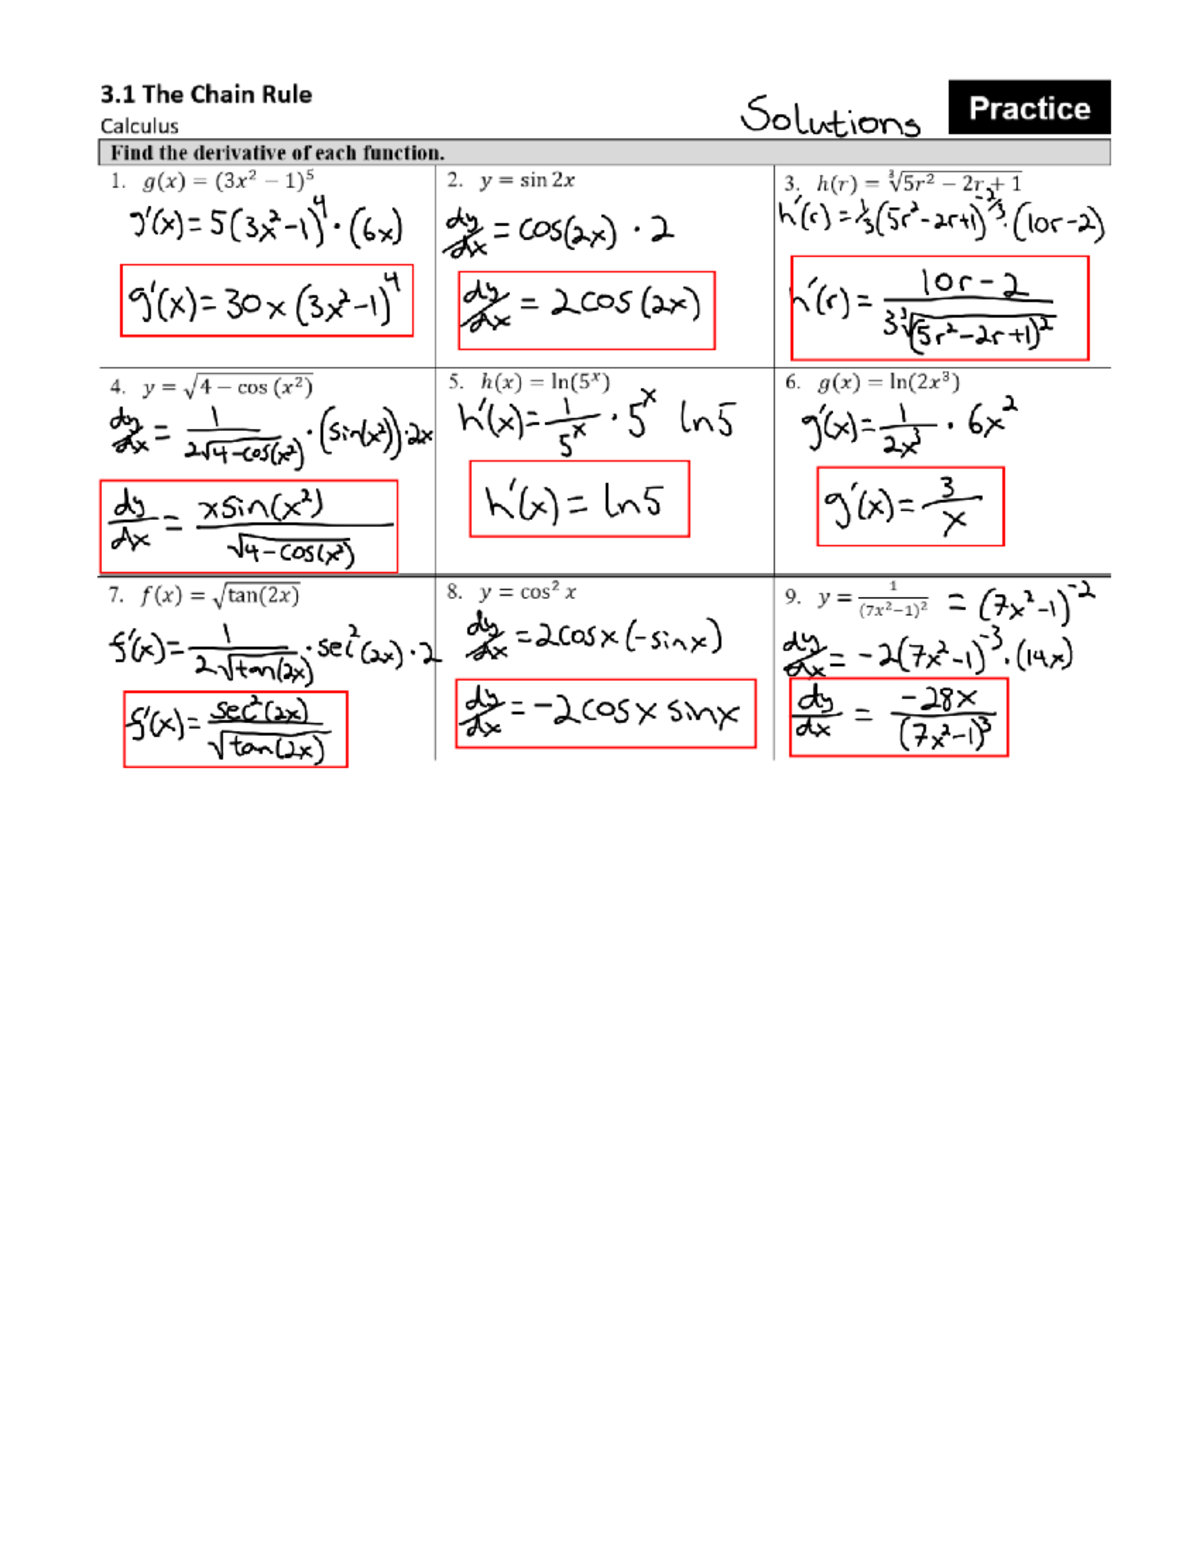 3.1 The Chain Rule
Calculus
Solutions
Practice
Find the derivative of each function.
1. g(x) = (3x² − 1)⁵
g'(x) = 5(3x²−1)⁴ · (6x)
g'(x) = 30x(3x²−1)⁴
2. y = sin 2x
dy/dx = cos(2x) · 2
dy/dx = 2cos(2x)
3. h(r) = ∛(5r² − 2r + 1)
h'(r) = 1/3(5r²−2r+1)^(-2/3) · (10r−2)
h'(r) = (10r−2)/(3∛(5r²−2r+1)²)
4. y = √(4 − cos (x²))
dy/dx = 1/(2√(4−cos(x²))) · (sin(x²)) · 2x
dy/dx = xsin(x²)/√(4−cos(x²))
5. h(x) = ln(5ˣ)
h'(x) = 1/5ˣ · 5ˣ ln5
h'(x) = ln5
6. g(x) = ln(2x³)
g'(x) = 1/(2x³) · 6x²
g'(x) = 3/x
7. f(x) = √(tan(2x))
f'(x) = 1/(2√(tan(2x))) · sec²(2x) · 2
f'(x) = sec²(2x)/√(tan(2x))
8. y = cos² x
dy/dx = 2cosx(−sinx)
dy/dx = −2cosx sinx
9. y = 1/(7x²−1)² = (7x²−1)⁻²
dy/dx = −2(7x²−1)⁻³ · (14x)
dy/dx = −28x/(7x²−1)³